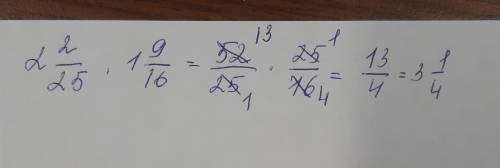 2 2/25 · 1 9/16 = 52 13/25 1 · 25 1/16 4 = 13/4 = 3 1/4